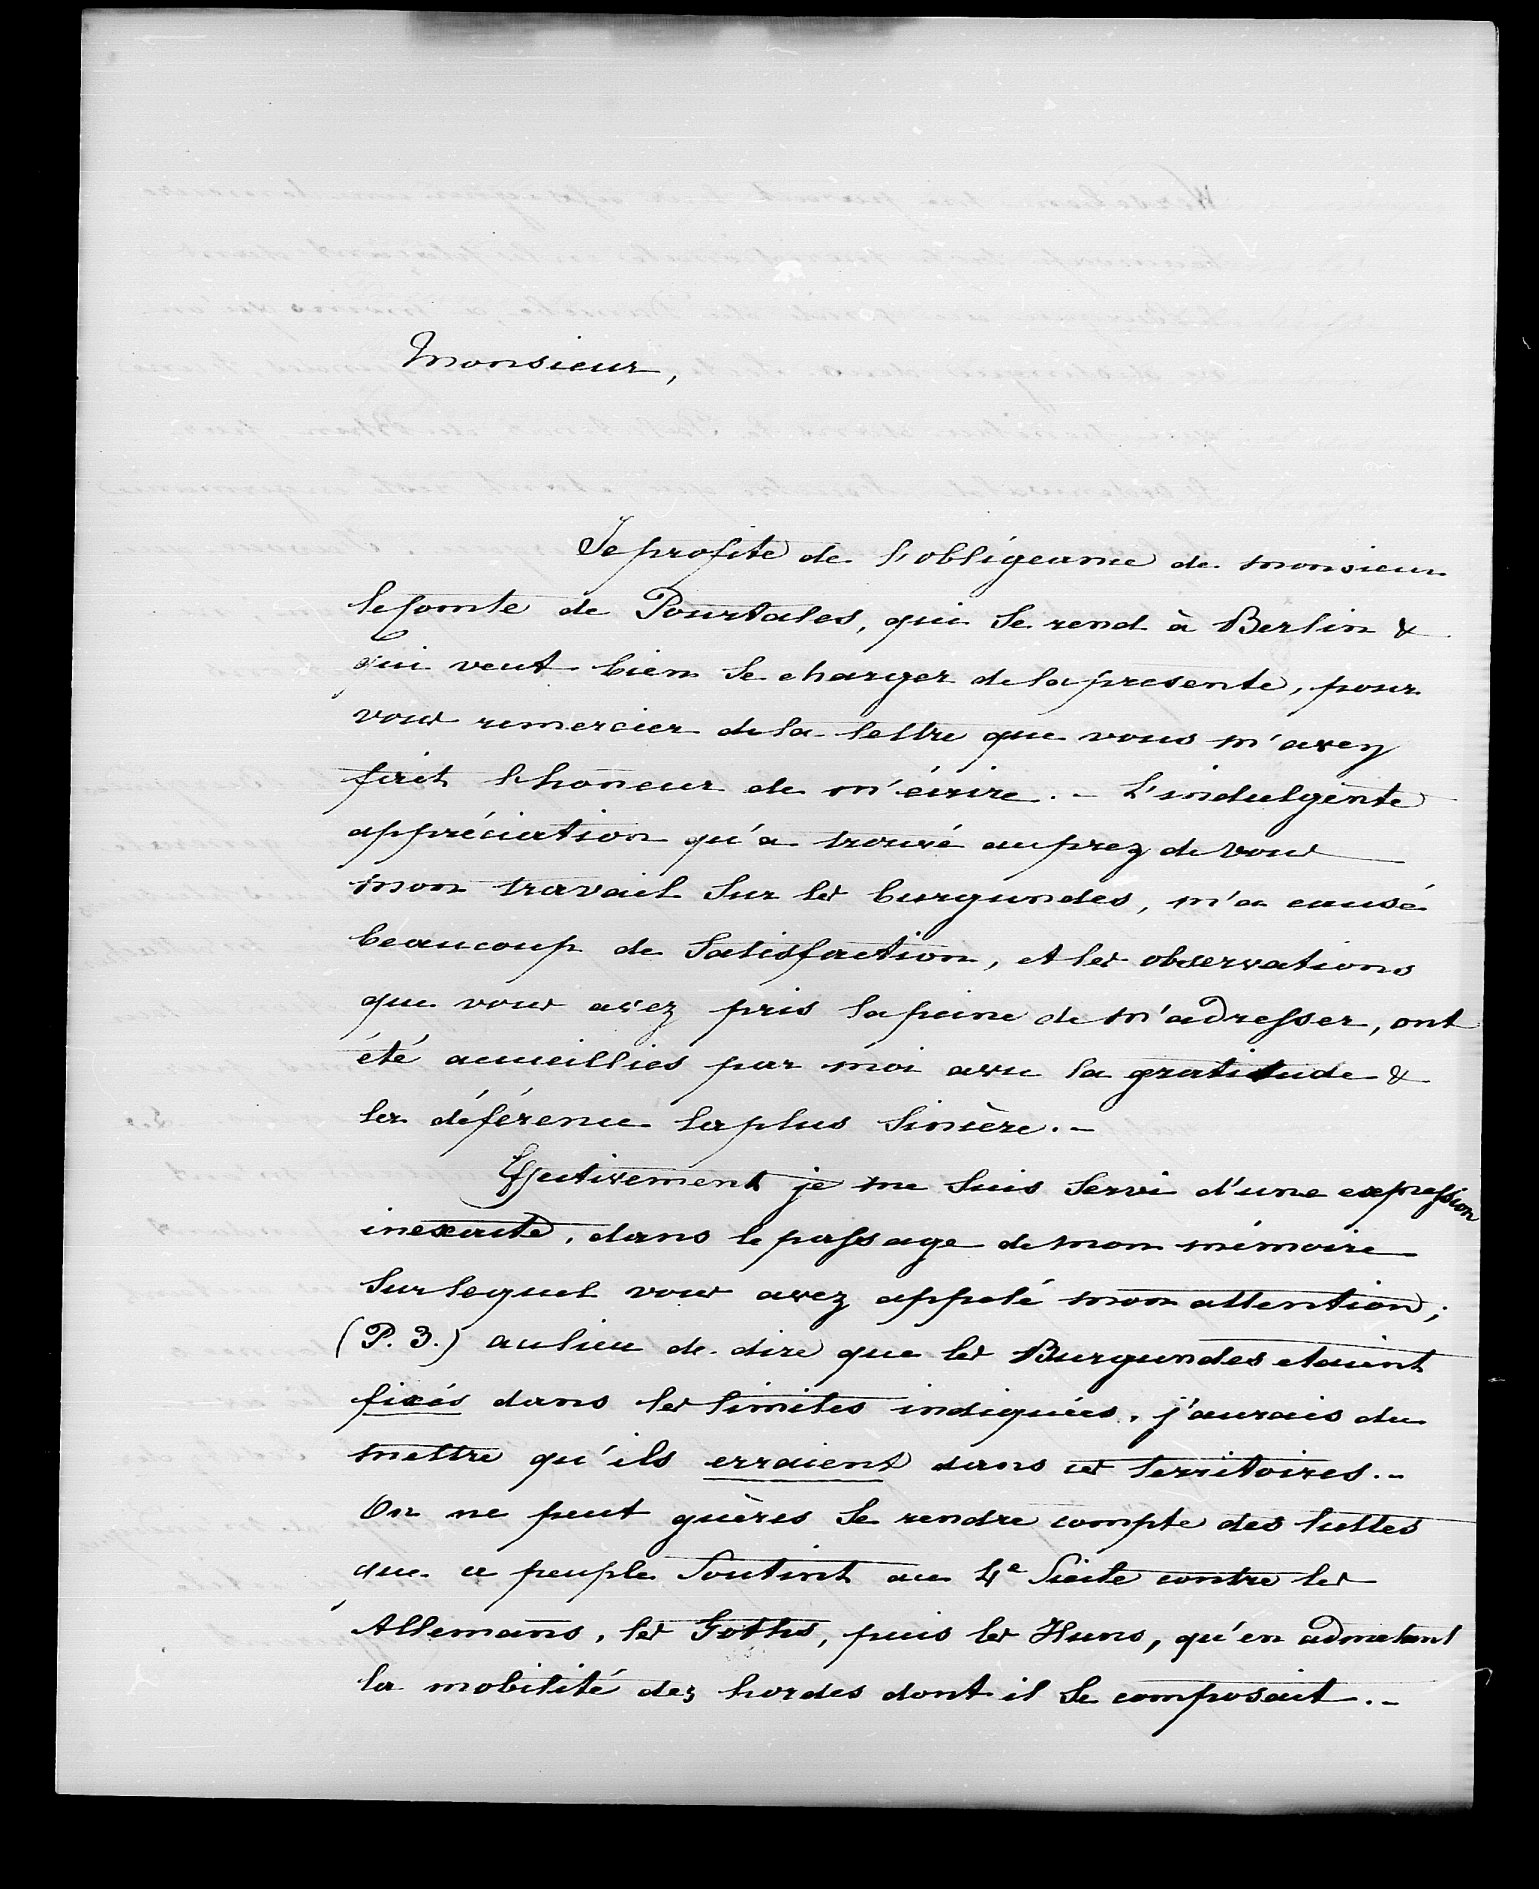 Monsieur,
Je profite de l'obligeance de monsieur
le Comte de Pourtales, qui se rend à Berlin &
qui veut bien se charger de la presente, pour
vous remercier de la lettre que vous m'avez
fait l'honeur de m'écrire. - L'indulgente
appréciation qu'a trouvé auprez de vous
mon travail sur les burgundes, m'a causé
beaucoup de satisfaction, et les observations
que vous avez pris la peine de m'adresser, ont
été acueillies par moi avec la gratitude &
la déférence la plus sincère. -
Effectivement je me suis servi d'une expression
inexacte, dans le passage de mon mémoire
sur lequel vous avez appelé mon attention;
(P. 3.) au lieu de dire que les Burgundes etaient
fixés dans les limites indiquées, j'aurais du
mettre qu'ils erraient dans ces territoires. -
On ne peut guères se rendre compte des luttes
que ce peuple soutint au 4e Siecle contre les
Allemans, les Goths, puis les Huns, qu'en admetant
la mobilité des hordes dont il se composait. -